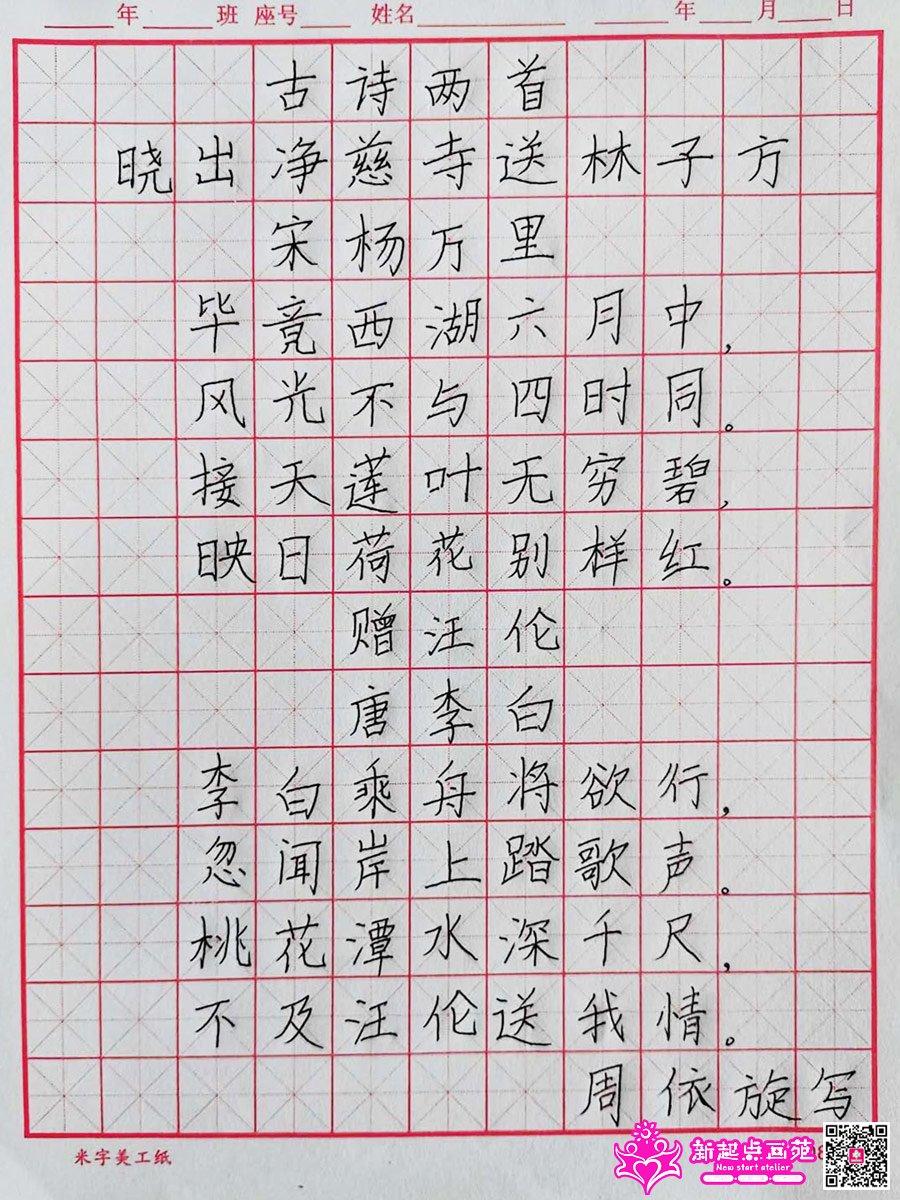 年 班 座号 姓名 年 月 日
古诗两首
晓出净慈寺送林子方
宋杨万里
毕竟西湖六月中，
风光不与四时同。
接天莲叶无穷碧，
映日荷花别样红。
赠汪伦
唐李白
李白乘舟将欲行，
忽闻岸上踏歌声。
桃花潭水深千尺，
不及汪伦送我情。
周依旋写
米字美工纸
新起点画苑
New start atelier